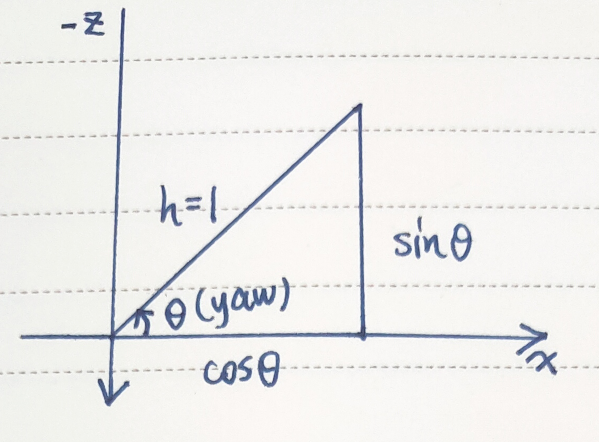 -z
h=1
sinθ
θ (yaw)
cosθ
x